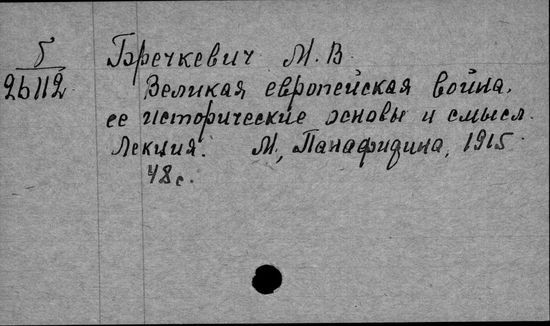 Б
26112
Бречкевич М. В.
Великая европейская война,
ее исторические основы и смысл.
Лекция. М., Панафидина, 1915.
48 с.